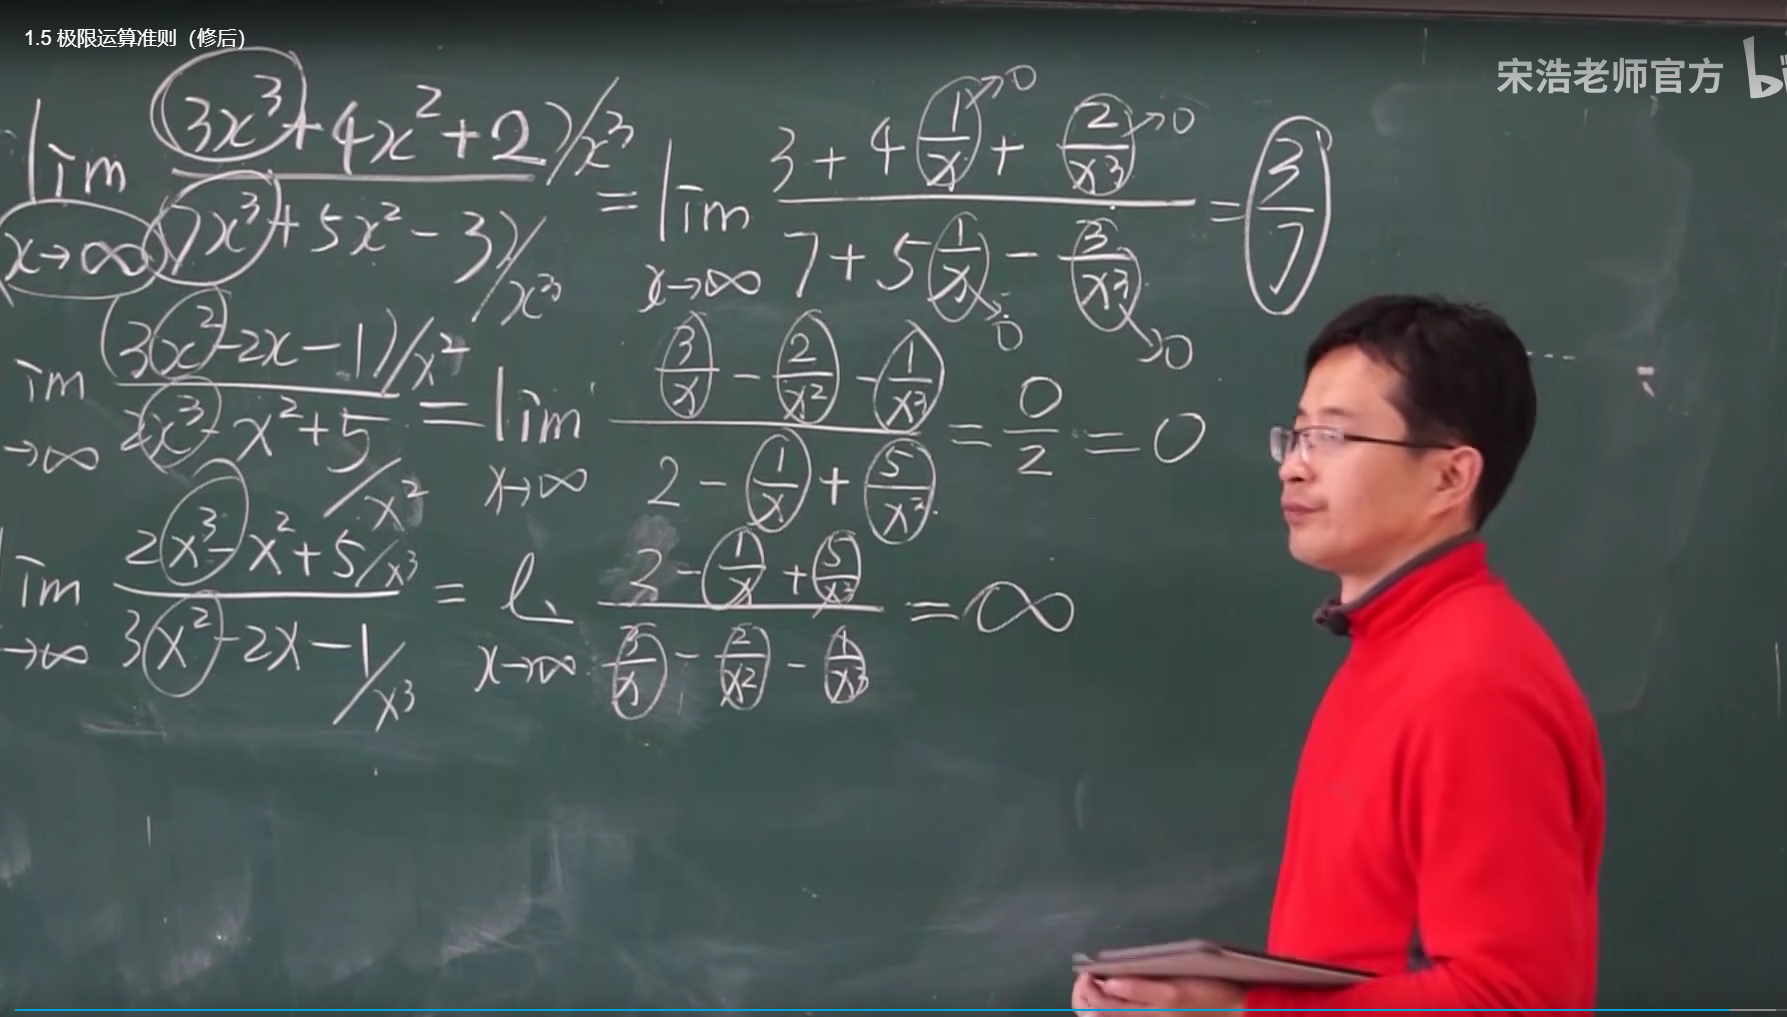 1.5 极限运算准则（修后）
宋浩老师官方 bi
lim x→∞ (3x³+4x²+2)/x³ / (7x³+5x²-3)/x³ = lim x→∞ 3+4 1/x + 2/x³ / 7+5 1/x - 3/x³ = 3/7
→0 →0 →0 →0
im →∞ (3x²-2x-1)/x² / 2x³-x²+5 /x² = lim x→∞ 3/x - 2/x² - 1/x³ / 2 - 1/x + 5/x² = 0/2 = 0
lim →∞ 2x³-x²+5/x³ / 3x²-2x-1/x³ = l x→∞ 2 - 1/x + 5/x² / 3/x - 2/x² - 1/x³ = ∞